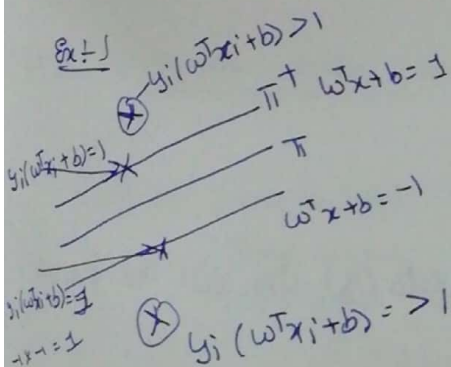 Ex:-1
yi(wᵀxi+b)>1
π⁺ wᵀx+b=1
yi(wᵀxi+b)=1
π
wᵀx+b=-1
yi(wᵀxi+b)=1
-1x-1=1
yi(wᵀxi+b)=>1